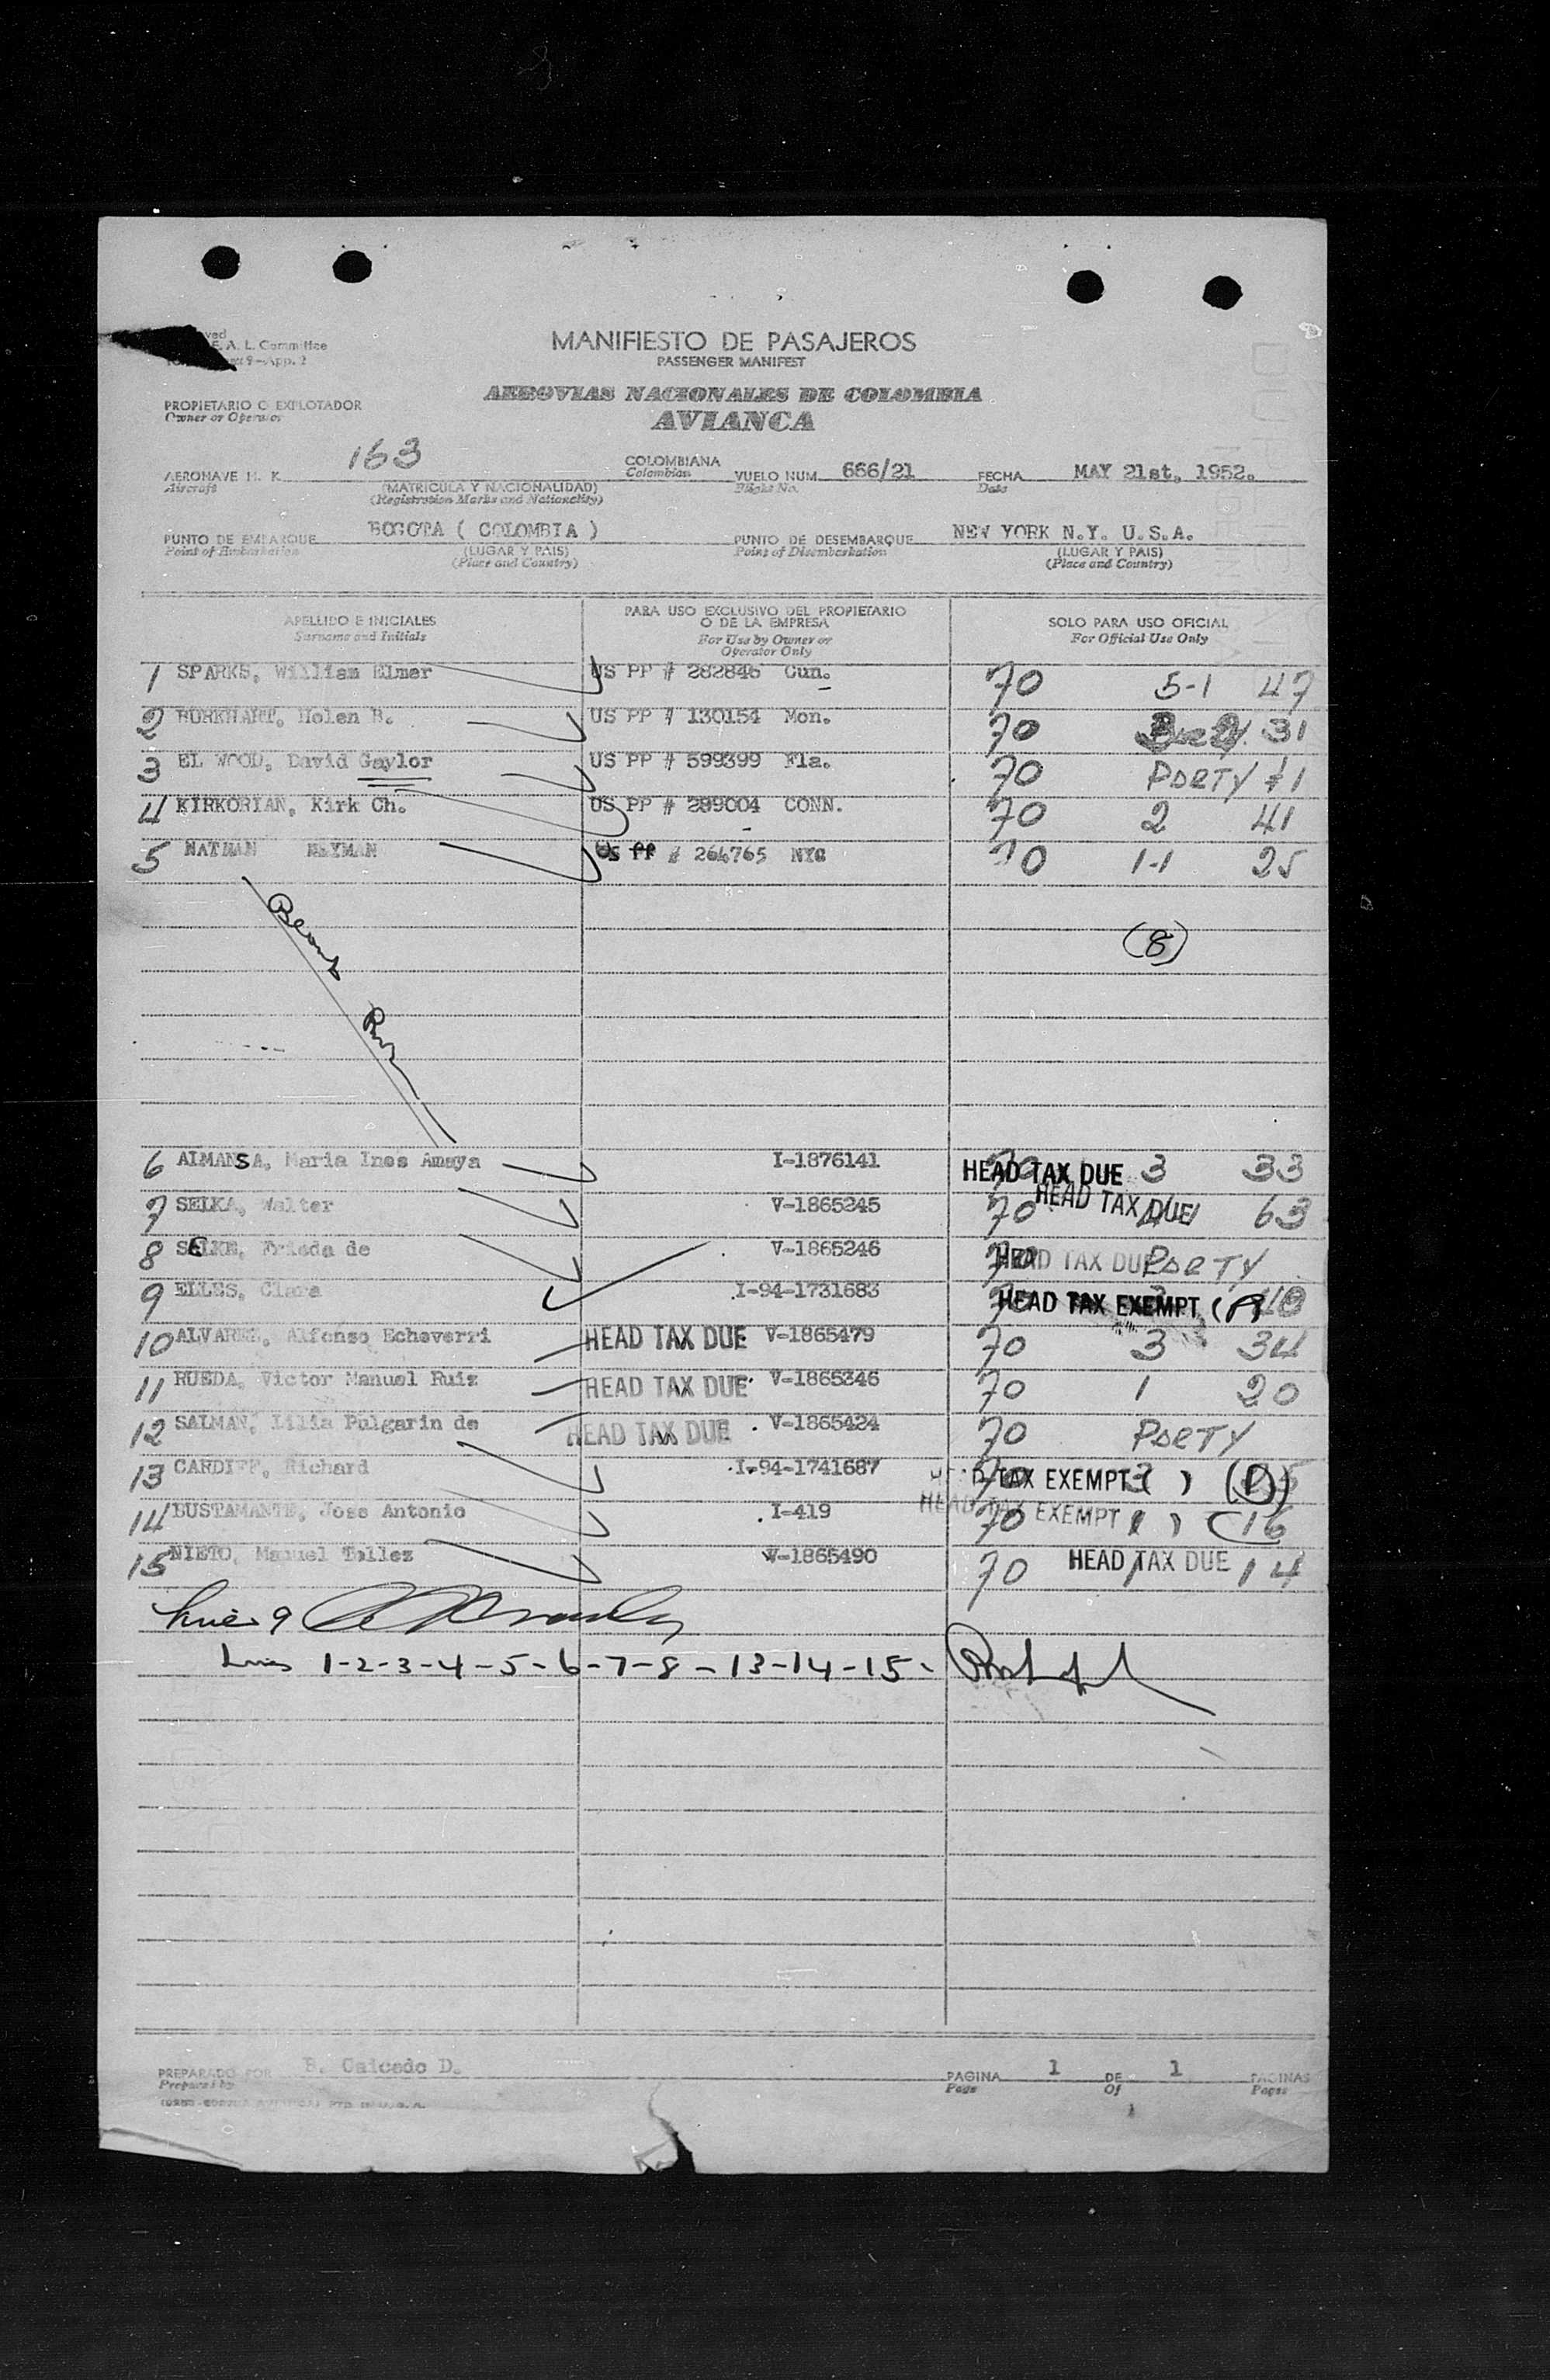 MANIFIESTO DE PASAJEROS
PASSENGER MANIFEST
E. A. L. Committee
9-App. 2
AEROVIAS NACIONALES DE COLOMBIA
AVIANCA
PROPIETARIO O EXPLOTADOR
Owner or Operator
AERONAVE H. K. 163 COLOMBIANA VUELO NUM. 666/21 FECHA MAY 21st, 1952.
Aircraft (MATRICULA Y NACIONALIDAD) Colombian Flight No. Date
(Registration Marks and Nationality)
PUNTO DE EMBARQUE BOGOTA ( COLOMBIA ) PUNTO DE DESEMBARQUE NEW YORK N.Y. U.S.A.
Point of Embarkation (LUGAR Y PAIS) Point of Disembarkation (LUGAR Y PAIS)
(Place and Country) (Place and Country)
APELLIDO E INICIALES PARA USO EXCLUSIVO DEL PROPIETARIO O DE LA EMPRESA SOLO PARA USO OFICIAL
Surname and Initials For Use by Owner or Operator Only For Official Use Only
1 SPARKS, William Elmer US PP # 282846 Cun. 70 5-1 47
2 BURKHART, Helen B. US PP # 130154 Mon. 70 31
3 EL WOOD, David Gaylor US PP # 599399 Fla. 70 PARTY 71
4 KIRKORIAN, Kirk Ch. US PP # 299004 CONN. 70 2 41
5 NATHAN HEYMAN US PP # 264765 NYC 70 1-1 25
(8)
6 ALMANSA, Maria Ines Amaya I-1876141 70 HEAD TAX DUE 3 33
7 SELKA, Walter V-1865245 70 HEAD TAX DUE 63
8 SELKE, Frieda de V-1865246 70 HEAD TAX DUE PARTY
9 ELLES, Clara I-94-1731683 70 HEAD TAX EXEMPT
10 ALVAREZ, Alfonso Echeverri HEAD TAX DUE V-1865479 70 3 34
11 RUEDA, Victor Manuel Ruiz HEAD TAX DUE V-1865346 70 1 20
12 SALMAN, Lilia Pulgarin de HEAD TAX DUE V-1865424 70 PARTY
13 CARDIFF, Richard I-94-1741687 70 HEAD TAX EXEMPT ( )
14 BUSTAMANTE, Jose Antonio I-419 70 HEAD TAX EXEMPT ( ) 16
15 NIETO, Manuel Tellez V-1865490 70 HEAD TAX DUE 1 14
Line 9
Lines 1-2-3-4-5-6-7-8-13-14-15-
PREPARADO POR B. Caicedo D. PAGINA 1 DE 1 PAGINAS
Prepared by Page Of Pages